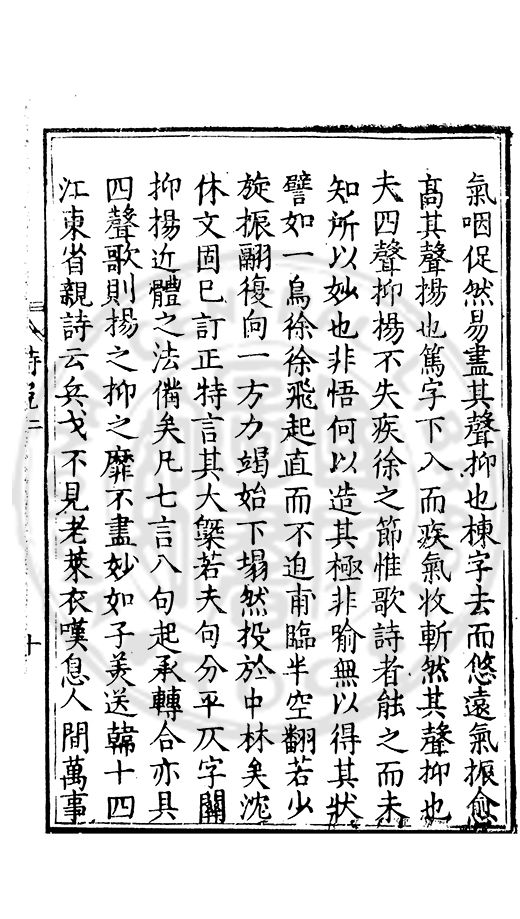 氣咽促然易盡其聲抑也棟字去而悠遠氣振愈
高其聲揚也篤字下入而疾氣收斬然其聲抑也
夫四聲抑揚不失疾徐之節惟歌詩者能之而未
知所以妙也非悟何以造其極非喻無以得其狀
譬如一鳥徐徐飛起直而不迫甫臨半空翻若少
旋振翮復向一方力竭始下塌然投於中林矣沈
休文固已訂正特言其大槩若夫句分平仄字關
抑揚近體之法備矣凡七言八句起承轉合亦具
四聲歌則揚之抑之靡不盡妙如子美送韓十四
江東省親詩云兵戈不見老萊衣嘆息人間萬事
十